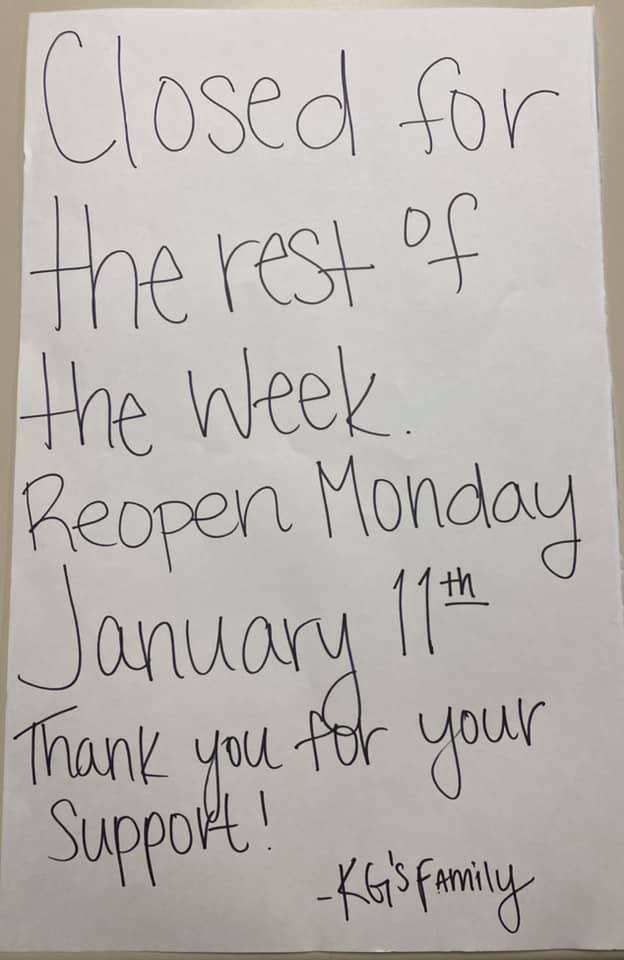 Closed for
the rest of
the week.
Reopen Monday
January 11th
Thank you for your
support!
-KG's FAmily